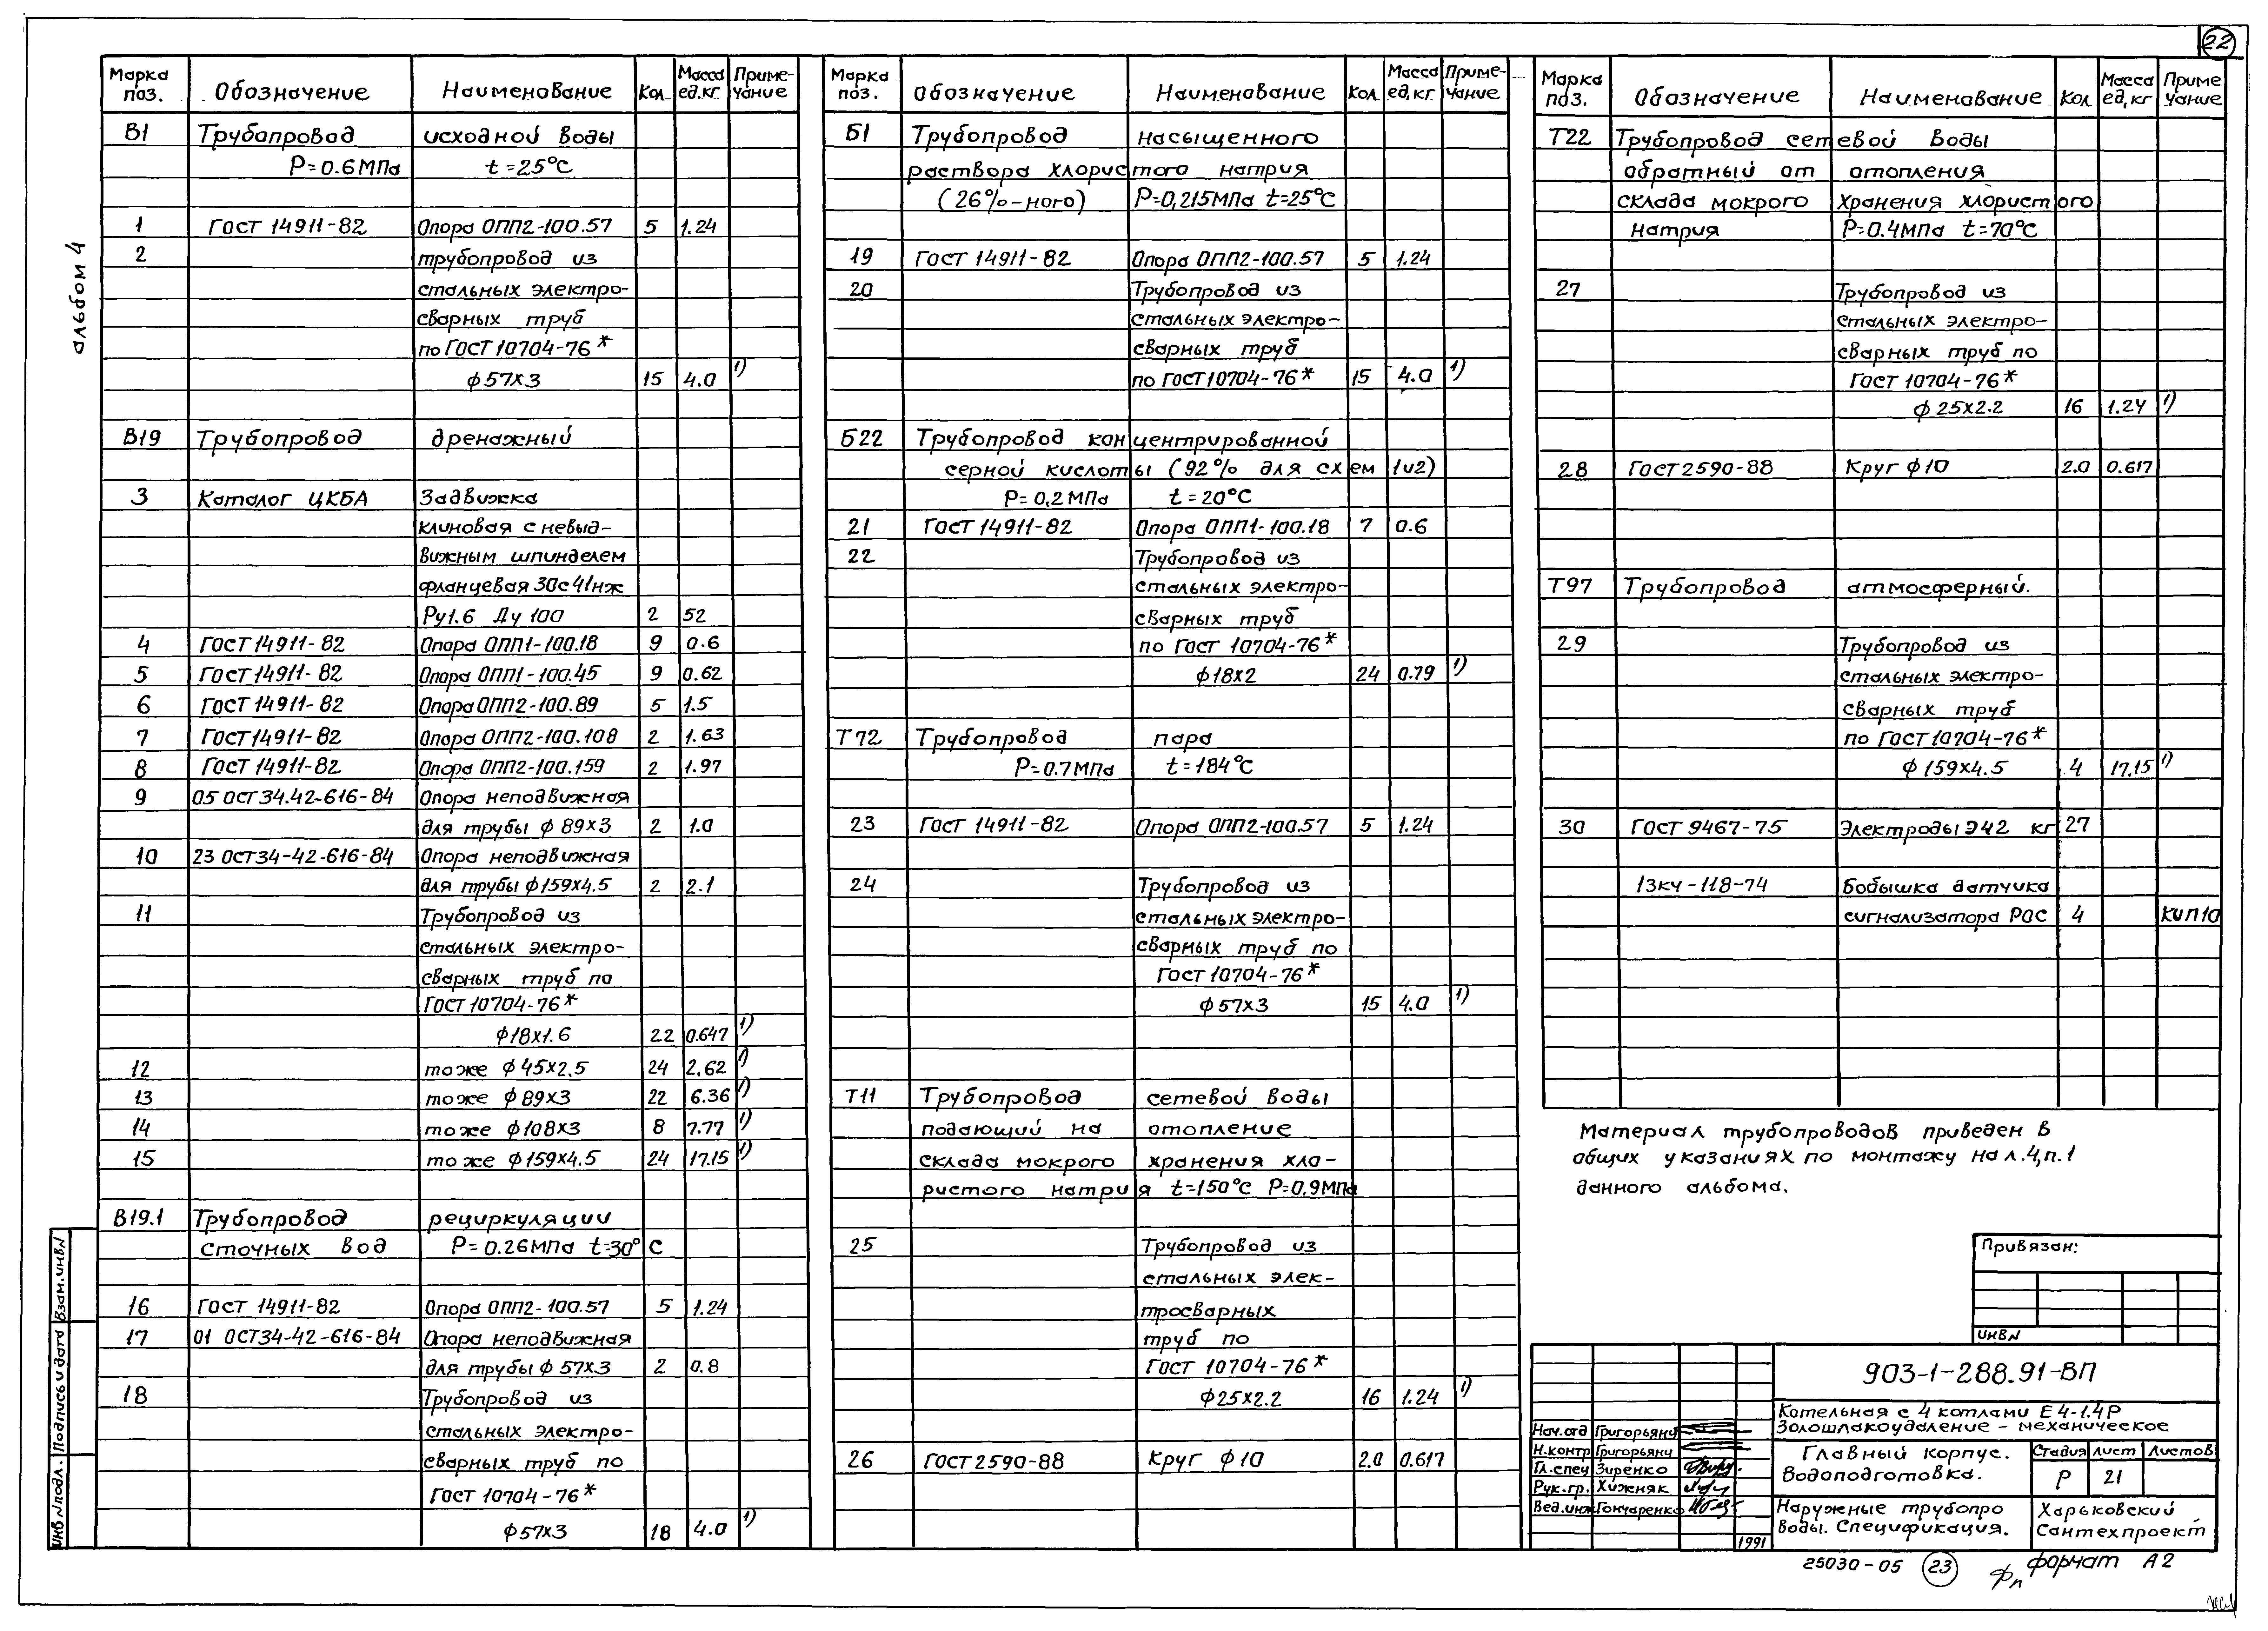 22
альбом 4
Марка поз. Обозначение Наименование Кол. Масса ед.кг Приме-чание
В1 Трубопровод исходной воды
Р=0.6МПа t=25°С
1 ГОСТ 14911-82 Опора ОПП2-100.57 5 1.24
2 трубопровод из
стальных электро-
сварных труб
по ГОСТ 10704-76*
ф57х3 15 4.0 1)
В19 Трубопровод дренажный
3 Каталог ЦКБА Задвижка
клиновая с невыд-
вижным шпинделем
фланцевая 30с41нж
Ру1.6 Ду 100 2 52
4 ГОСТ 14911-82 Опора ОПП1-100.18 9 0.6
5 ГОСТ 14911-82 Опора ОПП1-100.45 9 0.62
6 ГОСТ 14911-82 Опора ОПП2-100.89 5 1.5
7 ГОСТ 14911-82 Опора ОПП2-100.108 2 1.63
8 ГОСТ 14911-82 Опора ОПП2-100.159 2 1.97
9 05 ОСТ 34.42-616-84 Опора неподвижная
для трубы ф 89х3 2 1.0
10 23 ОСТ34-42-616-84 Опора неподвижная
для трубы ф159х4.5 2 2.1
11 Трубопровод из
стальных электро-
сварных труб по
ГОСТ 10704-76*
ф18х1.6 22 0.647 1)
12 тоже ф45х2.5 24 2,62 1)
13 тоже ф89х3 22 6.36 1)
14 тоже ф108х3 8 7.77 1)
15 тоже ф159х4.5 24 17.15 1)
В19.1 Трубопровод рециркуляции
сточных вод Р=0.26МПа t=30°С
16 ГОСТ 14911-82 Опора ОПП2-100.57 5 1.24
17 01 ОСТ34-42-616-84 Опора неподвижная
для трубы ф 57х3 2 0.8
18 Трубопровод из
стальных электро-
сварных труб по
ГОСТ 10704-76*
ф57х3 18 4.0 1)
Марка поз. Обозначение Наименование Кол. Масса ед.кг Приме-чание
Б1 Трубопровод насыщенного
раствора хлористого натрия
(26%-ного) Р=0,215МПа t=25°С
19 ГОСТ 14911-82 Опора ОПП2-100.57 5 1.24
20 Трубопровод из
стальных электро-
сварных труб
по ГОСТ10704-76* 15 4.0 1)
Б22 Трубопровод концентрированной
серной кислоты (92% для схем 1и2)
Р=0,2МПа t=20°С
21 ГОСТ 14911-82 Опора ОПП1-100.18 7 0.6
22 Трубопровод из
стальных электро-
сварных труб
по ГОСТ 10704-76*
ф18х2 24 0.79 1)
Т72 Трубопровод пара
Р=0.7МПа t=184°С
23 ГОСТ 14911-82 Опора ОПП2-100.57 5 1.24
24 Трубопровод из
стальных электро-
сварных труб по
ГОСТ 10704-76*
ф57х3 15 4.0 1)
Т11 Трубопровод сетевой воды
подающий на отопление
склада мокрого хранения хло-
ристого натрия t=150°С Р=0,9МПа
25 Трубопровод из
стальных элек-
тросварных
труб по
ГОСТ 10704-76*
ф25х2.2 16 1.24 1)
26 ГОСТ2590-88 Круг ф10 2.0 0.617
Марка поз. Обозначение Наименование Кол Масса ед,кг Приме чание
Т22 Трубопровод сетевой воды
обратный от отопления
склада мокрого хранения хлористого
натрия Р=0.4МПа t=70°С
27 Трубопровод из
стальных электро-
сварных труб по
ГОСТ 10704-76*
ф 25х2.2 16 1.24 1)
28 ГОСТ2590-88 Круг ф10 2.0 0.617
Т97 Трубопровод атмосферный.
29 Трубопровод из
стальных электро-
сварных труб
по ГОСТ10704-76*
ф159х4.5 4 17.15 1)
30 ГОСТ 9467-75 Электроды Э42 кг 27
13кч-118-74 Бобышка датчика
сигнализатора РОС 4 КИП10
Материал трубопроводов приведен в
общих указаниях по монтажу на л.4,п.1
данного альбома.
Привязан:
ИНВ№
903-1-288.91-ВП
Котельная с 4 котлами Е4-1.4Р
Золошлакоудаление - механическое
Нач.отд Григорьянц
Н.контр Григорьянц
Гл.спец Зиренко
Рук.гр. Хижняк
Вед.инж Гончаренко
1991
Главный корпус.
Водоподготовка.
Стадия Лист Листов
Р 21
Наружные трубопро
воды. Спецификация.
Харьковский
Сантехпроект
25030-05 23 формат А2
Инв № подл. Подпись и дата Взам.инв№